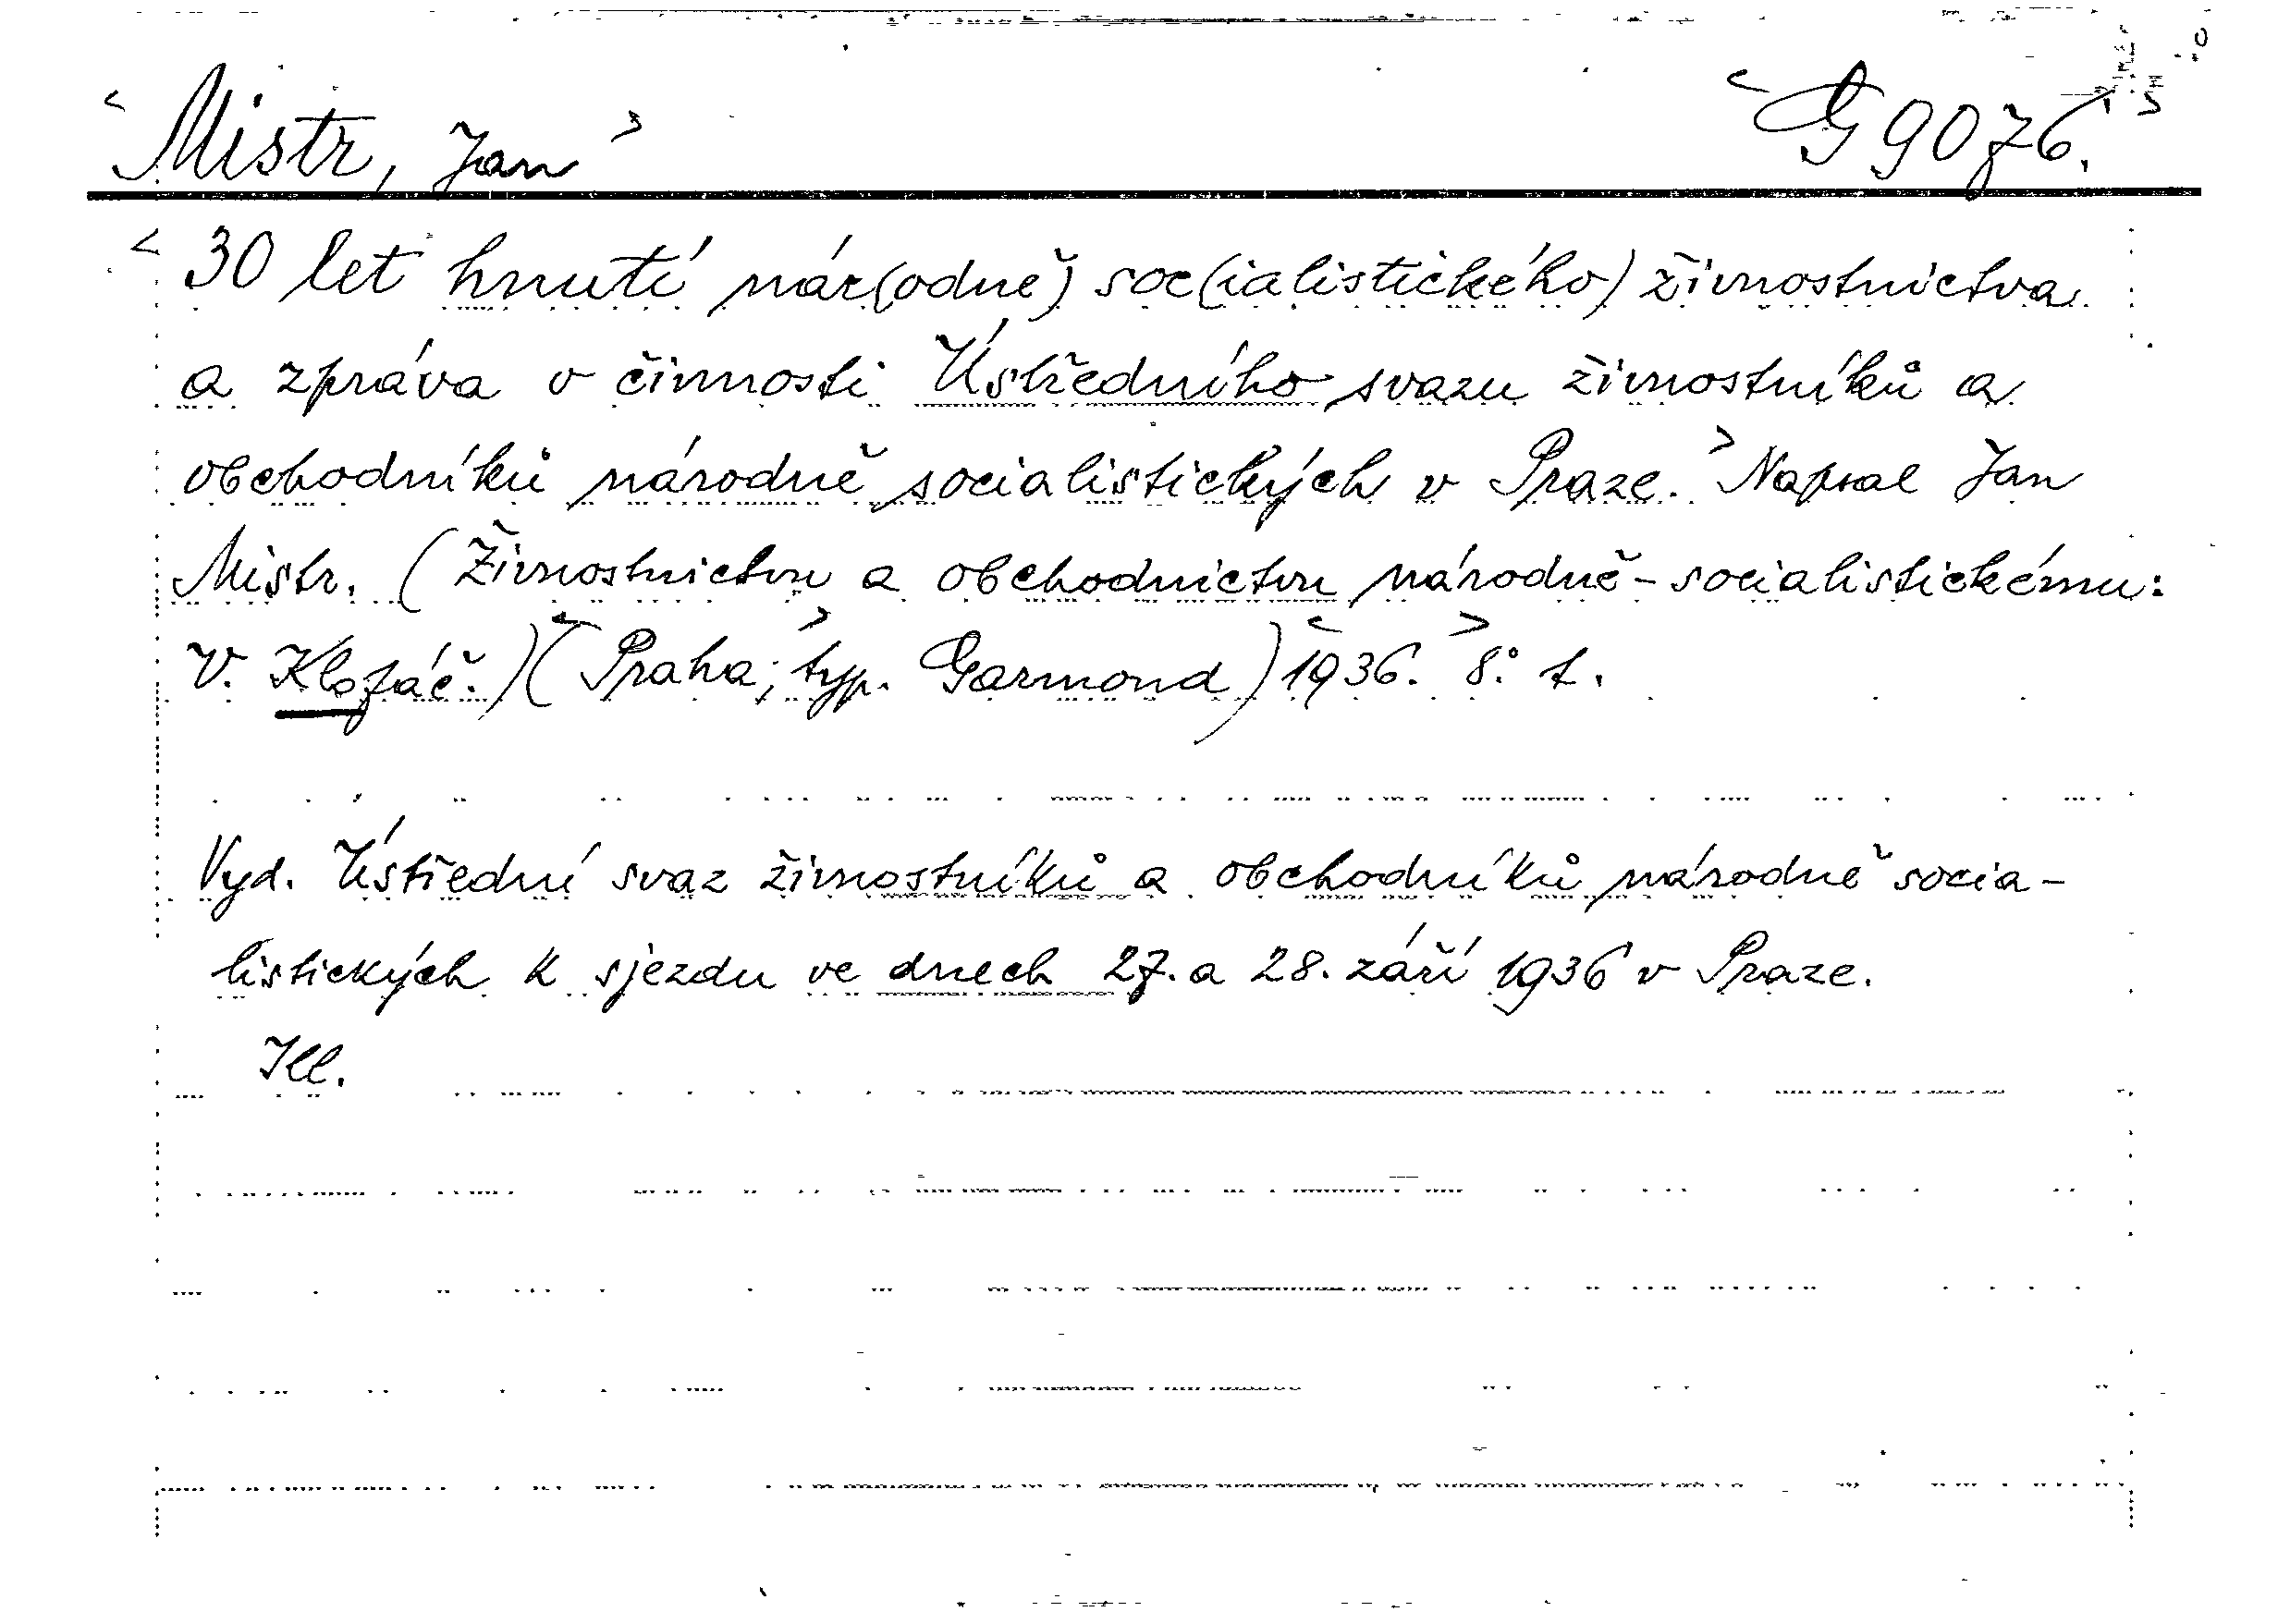 <Mistr, Jan> <G 9076.>
<30 let hnutí nár(odně) soc(ialistického) živnostnictva
a zpráva o činnosti Ústředního svazu živnostníků a
obchodníků národně socialistických v Praze.> Napsal Jan
Mistr. (Živnostnictvu a obchodnictvu národně-socialistickému:
V. Klofáč.) (<Praha;> typ. Garmond) <1936.> 8° t.
Vyd. Ústřední svaz živnostníků a obchodníků národně socia-
listických k sjezdu ve dnech 27. a 28. září 1936 v Praze.
Ill.